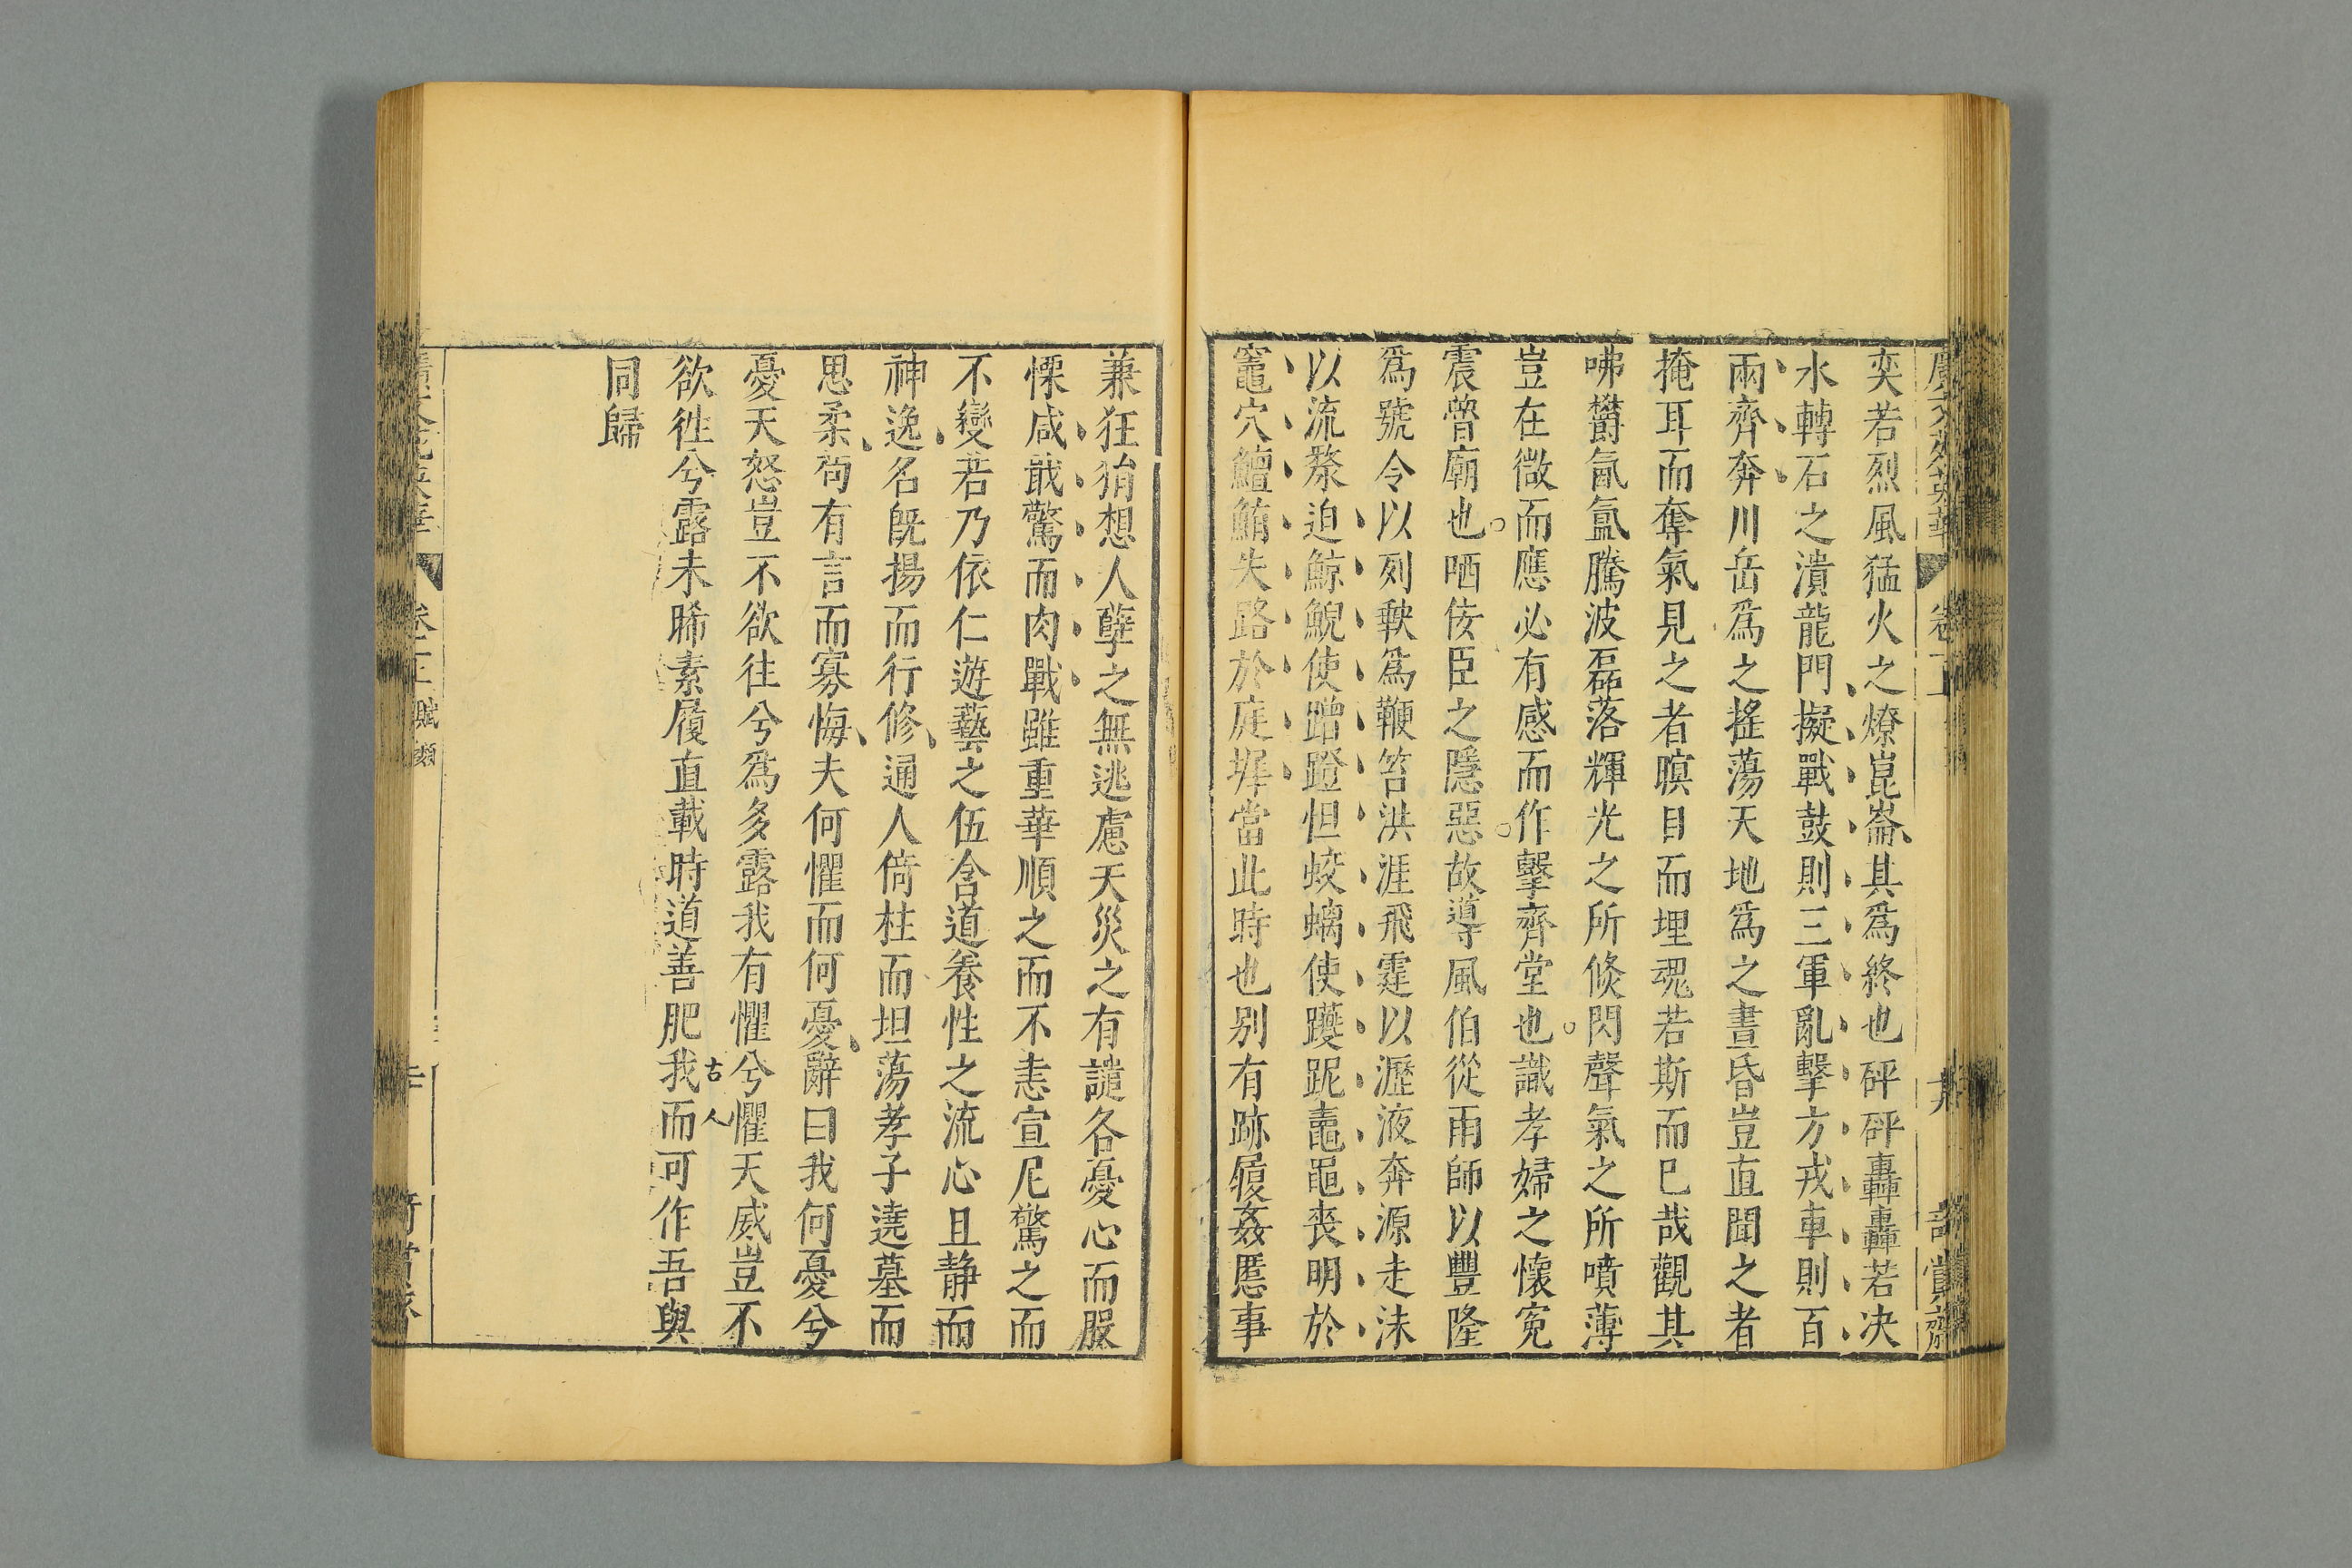 奕若烈風猛火之燎崑崙其爲終也砰砰轟轟若决
水轉石之潰龍門擬戰鼓則三軍亂擊方戎車則百
兩齊奔川岳爲之搖蕩天地爲之晝昏豈直聞之者
掩耳而奪氣見之者瞑目而埋魂若斯而巳哉觀其
咈欝氤氳騰波磊落輝光之所倐閃聲氣之所噴薄
豈在微而應必有感而作擊齊堂也識孝婦之懷寃
震曾廟也哂佞臣之隱惡故導風伯從雨師以豐隆
爲號令以列鞅爲鞭笞洪涯飛霆以瀝液奔源走沫
以流漦迫鯨鯢使蹭蹬怛蛟螭使躨跜鼃黽喪明於
竈穴鱣鮪失路於庭墀當此時也别有跡履姦慝事
兼狂狷想人孽之無逃慮天災之有譴各憂心而股
慄咸戢驚而肉戰雖重華順之而不恚宣尼驚之而
不變若乃依仁遊藝之伍含道養性之流心且静而
神逸名旣揚而行修通人倚柱而坦蕩孝子遶墓而
思柔苟有言而寡悔夫何懼而何憂辭曰我何憂兮
憂天怒豈不欲往兮爲多露我有懼兮懼天威豈不
欲徃兮露未晞素履直載時道善肥我而可作吾與
古人
同歸
卷 賦類